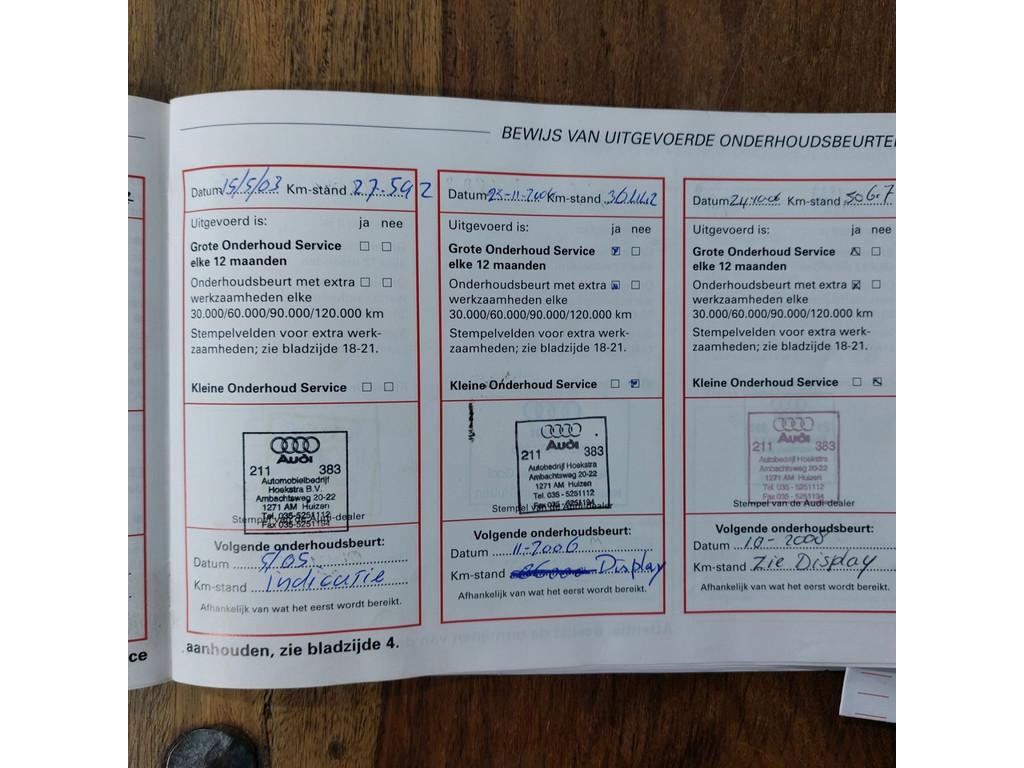 BEWIJS VAN UITGEVOERDE ONDERHOUDSBEURTE
Datum 15/5/03 Km-stand 27.592
Uitgevoerd is: ja nee
Grote Onderhoud Service
elke 12 maanden
Onderhoudsbeurt met extra
werkzaamheden elke
30.000/60.000/90.000/120.000 km
Stempelvelden voor extra werk-
zaamheden; zie bladzijde 18-21.
Kleine Onderhoud Service
Audi
211 383
Automobielbedrijf
Hoekstra B.V.
Ambachtsweg 20-22
1271 AM Huizen
Tel. 035-5251112
Fax 035-5251194
Stempel van de Audi-dealer
Volgende onderhoudsbeurt:
Datum 5/05
Km-stand Indicatie
Afhankelijk van wat het eerst wordt bereikt.
Datum Km-stand
Uitgevoerd is: ja nee
Grote Onderhoud Service
elke 12 maanden
Onderhoudsbeurt met extra
werkzaamheden elke
30.000/60.000/90.000/120.000 km
Stempelvelden voor extra werk-
zaamheden; zie bladzijde 18-21.
Kleine Onderhoud Service
Audi
211 383
Autobedrijf Hoekstra
Ambachtsweg 20-22
1271 AM Huizen
Tel. 035 - 5251112
Fax 035 - 5251194
Stempel van de Audi-dealer
Volgende onderhoudsbeurt:
Datum 11-2006
Km-stand Display
Afhankelijk van wat het eerst wordt bereikt.
Datum Km-stand
Uitgevoerd is: ja nee
Grote Onderhoud Service
elke 12 maanden
Onderhoudsbeurt met extra
werkzaamheden elke
30.000/60.000/90.000/120.000 km
Stempelvelden voor extra werk-
zaamheden; zie bladzijde 18-21.
Kleine Onderhoud Service
Audi
211 383
Autobedrijf Hoekstra
Ambachtsweg 20-22
1271 AM Huizen
Tel. 035 - 5251112
Fax 035 - 5251194
Stempel van de Audi-dealer
Volgende onderhoudsbeurt:
Datum
Km-stand Zie Display
Afhankelijk van wat het eerst wordt bereikt.
ce
aanhouden, zie bladzijde 4.